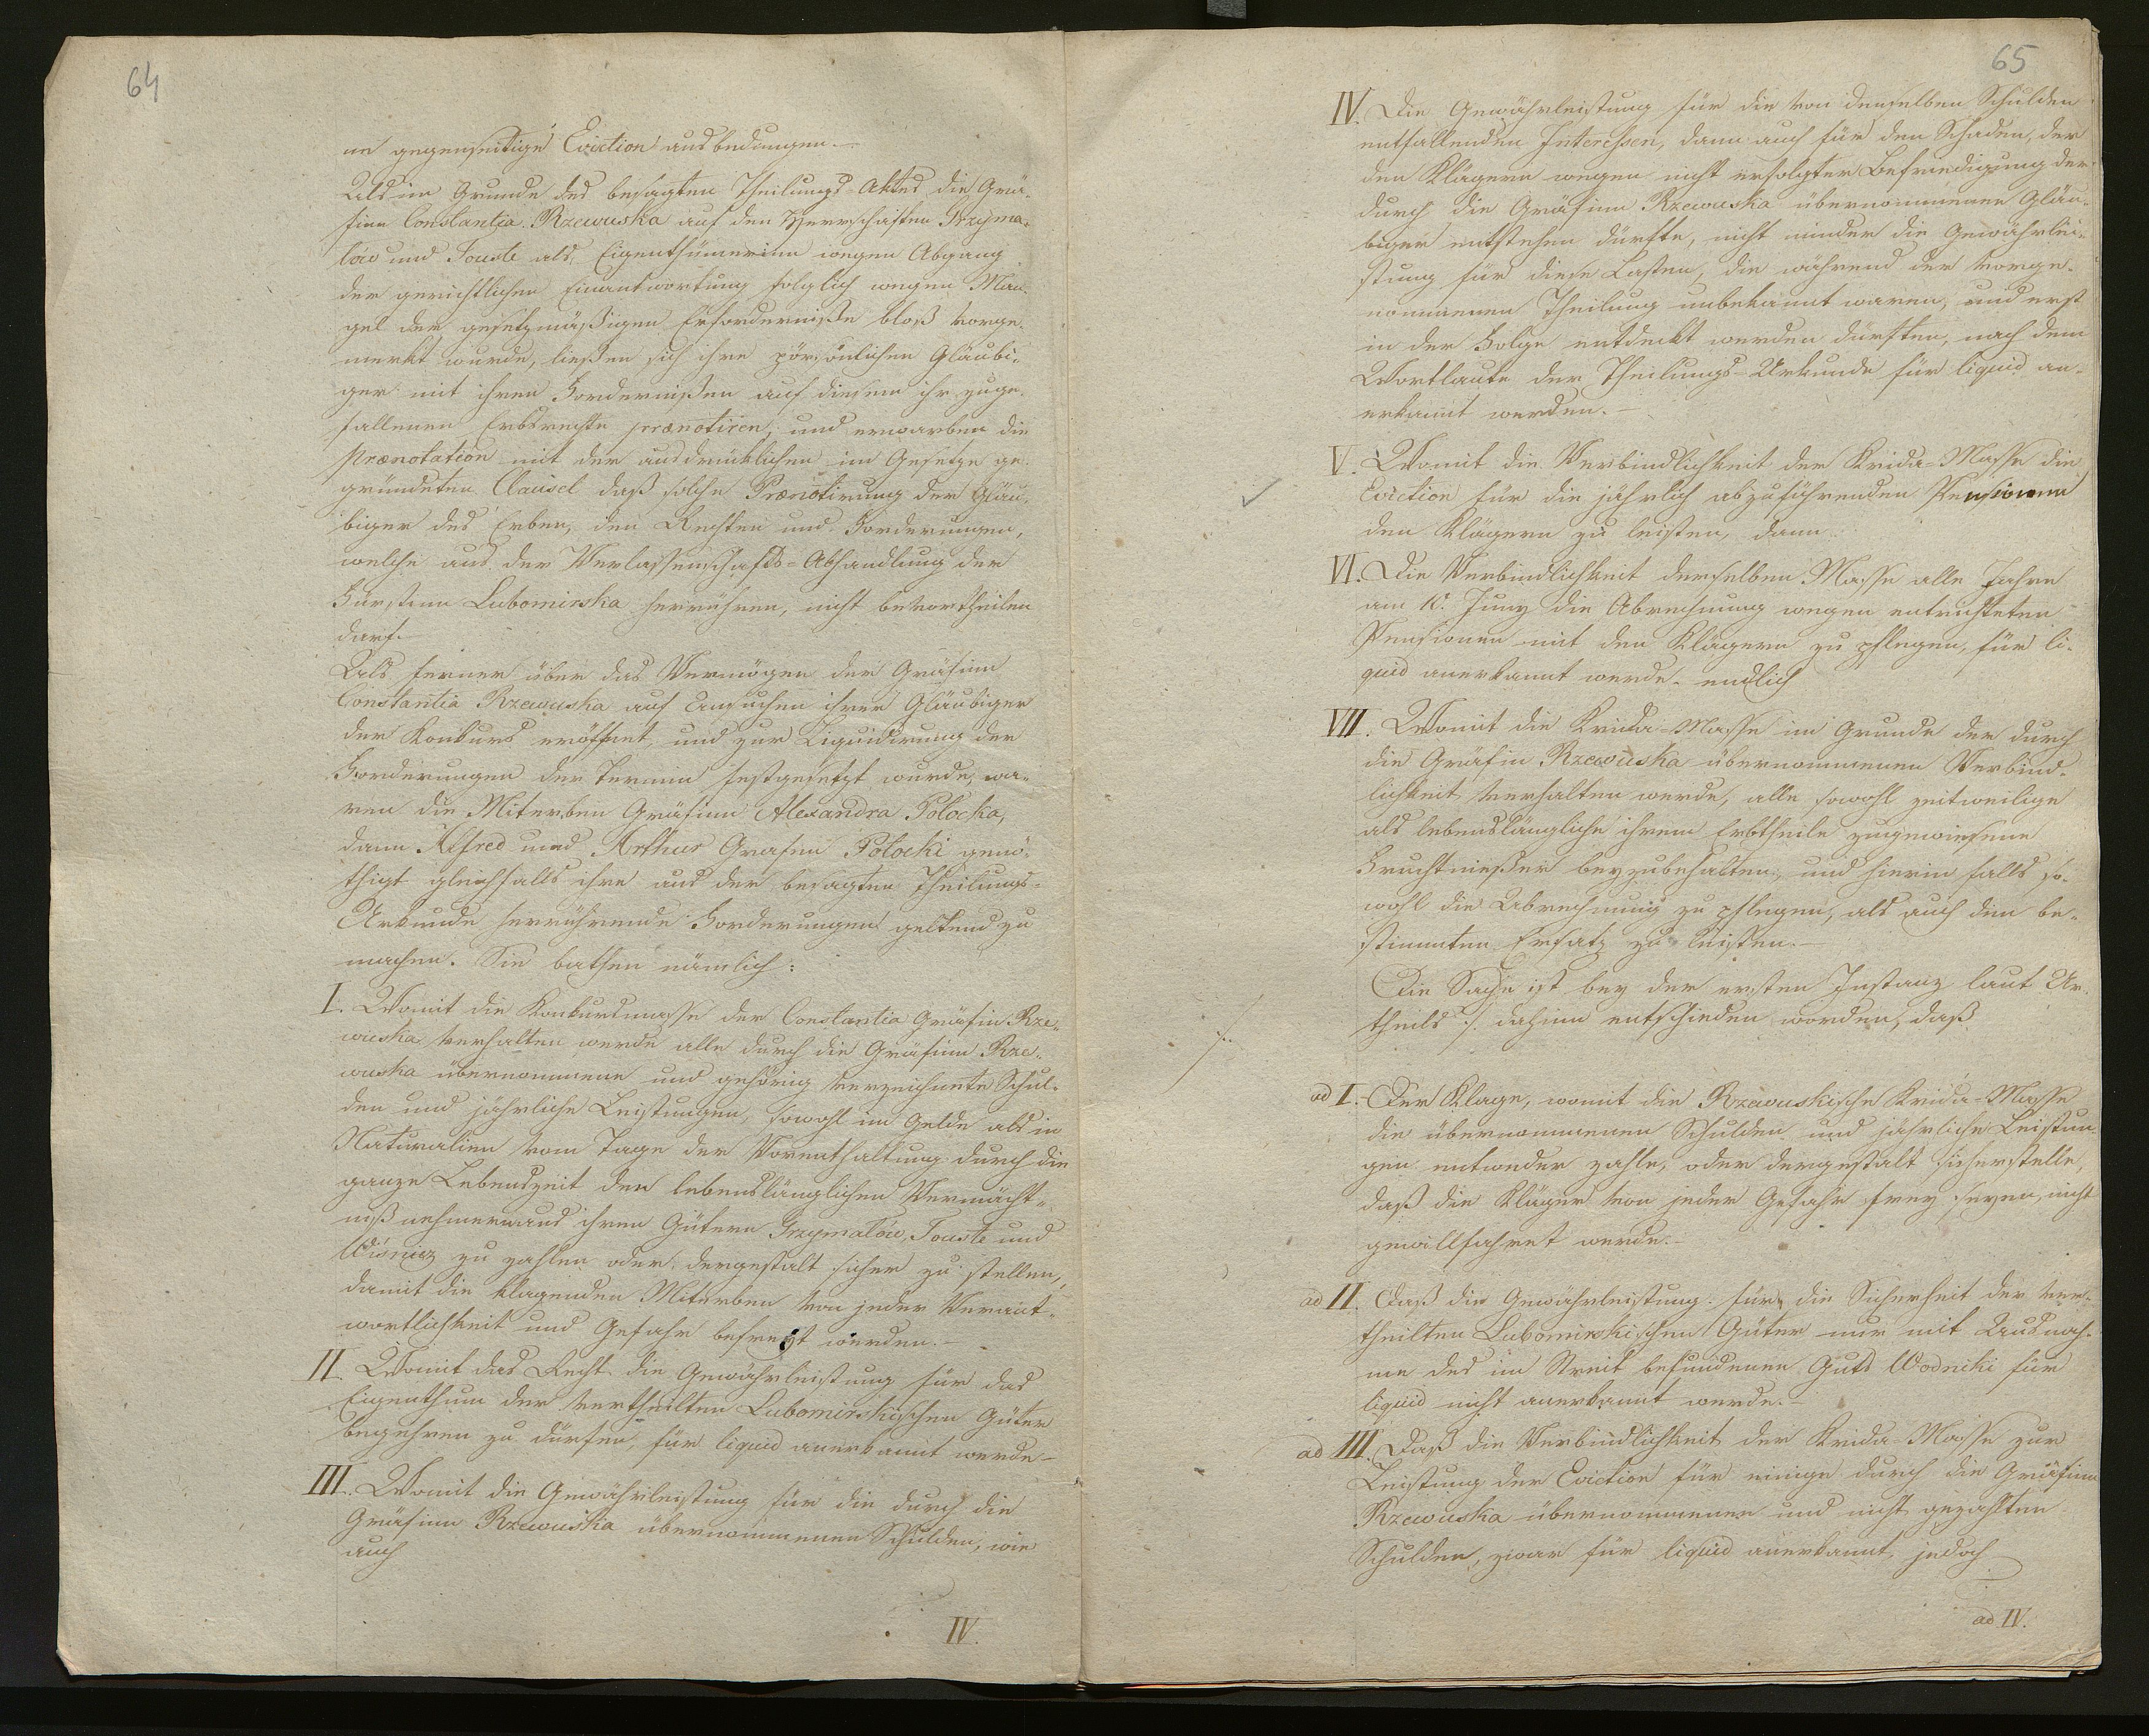 64
ne gegenseitige Eviction ausbedungen.—
Als im Grunde des besagten Theilungs-Aktes die Grä-
finn Constantia Rzewuska auf den Herrschaften Grzyma-
łów und Touste als Eigenthümerinn wegen Abgang
der gerichtlichen Einantwortung folglich wegen Man-
gel der gesetzmäßigen Erforderniße bloß vorge-
merkt wurde, ließen sich ihre persönlichen Gläubi-
ger mit ihren Fordernißen auf diesem ihr zuge-
fallenen Erbsrechte prænotiren, und erwarben die
Prænotation mit der ausdrücklichen im Gesetze ge-
gründeten Clausel daß solche Prænotirung der Gläu-
biger des Erben, den Rechten und Forderungen,
welche aus der Verlassenschafts-Abhandlung der
Fürstinn Lubomirska herrühren, nicht bevortheilen
darf.
Als ferner über das Vermögen der Gräfinn
Constantia Rzewuska auf Ansuchen ihrer Gläubiger
der Konkurs eröffnet, und zur Liquidirung der
Forderungen der Termin festgesetzt wurde, wa-
ren die Miterben Gräfinn Alexandra Potocka,
dann Alfred und Arthur Grafen Potocki genö-
thigt gleichfalls ihre aus der besagten Theilungs-
Urkunde herrührende Forderungen geltend zu
machen. Sie bathen nämlich:
I. Womit die Konkursmasse der Constantia Gräfin Rze-
wuska verhalten werde alle durch die Gräfinn Rze-
wuska übernommene und gehörig verzeichnete Schul-
den und jährliche Leistungen, sowohl im Gelde als in
Naturalien vom Tage der Vorenthaltung durch die
ganze Lebenszeit der lebenslänglichen Vermächt-
nißnehmer aus ihren Gütern Grzymałów, Touste und
Wisnicz zu zahlen oder dergestalt sicher zu stellen,
damit die klagenden Miterben von jeder Verant-
wortlichkeit und Gefahr befreyt werden.—
II. Womit das Recht die Gewährleistung für das
Eigenthum der vertheilten Lubomirskischen Güter
begehren zu dürfen, für liquid anerkannt werde—
III. Womit die Gewährleistung für die durch die
Gräfinn Rzewuska übernommenen Schulden, wie
auch
IV.
65
IV. Die Gewährleistung für die von denselben Schulden
entfallenden Interessen, dann auch für den Schaden, der
den Klägern wegen nicht erfolgter Befriedigung der
durch die Gräfinn Rzewuska übernommenen Gläu-
biger entstehen dürfte, nicht minder die Gewährlei-
stung für diese Lasten, die während der vorge-
nommenen Theilung unbekannt waren, und erst
in der Folge entdeckt werden dürften, nach dem
Wortlaute der Theilungs-Urkunde für liquid an-
erkannt werden.—
V. Womit die Verbindlichkeit der Krida-Masse die
Eviction für die jährlich abzuführenden Pensionen
den Klägern zu leisten, dann
VI. Die Verbindlichkeit derselben Masse alle Jahre
am 10. Juny die Abrechnung wegen entrichteten
Pensionen mit den Klägern zu pflegen, für li-
quid anerkannt werde. endlich
VII. Womit die Krida-Masse im Grunde der durch
die Gräfin Rzewuska übernommenen Verbind-
lichkeit verhalten werde, alle sowohl zeitweilige
als lebenslängliche ihrem Erbtheile zugewiesene
Fruchtnießer beyzubehalten, und hierin falls so-
wohl die Abrechnung zu pflegen, als auch den be-
stimmten Ersatz zu leisten.—
Die Sache ist bey der ersten Instanz laut Ur-
theils ./. dahinn entschieden worden, daß
./.
ad I. Der Klage, womit die Rzewuskische Krida-Masse
die übernommenen Schulden und jährliche Leistun-
gen entweder zahle, oder dergestalt sicherstelle,
daß die Kläger von jeder Gefahr frey seyen, nicht
gewillfahret werde.—
ad II. Daß die Gewährleistung für die Sicherheit der ver-
theilten Lubomirskischen Güter nur mit Ausnah-
me des im Streit befundenen Guts Wodniki für
liquid nicht anerkannt werde.—
ad III. Daß die Verbindlichkeit der Krida-Masse zur
Leistung der Eviction für einige durch die Gräfinn
Rzewuska übernommenen und nicht gezahlten
Schulden, zwar für liquid anerkannt, jedoch
ad IV.